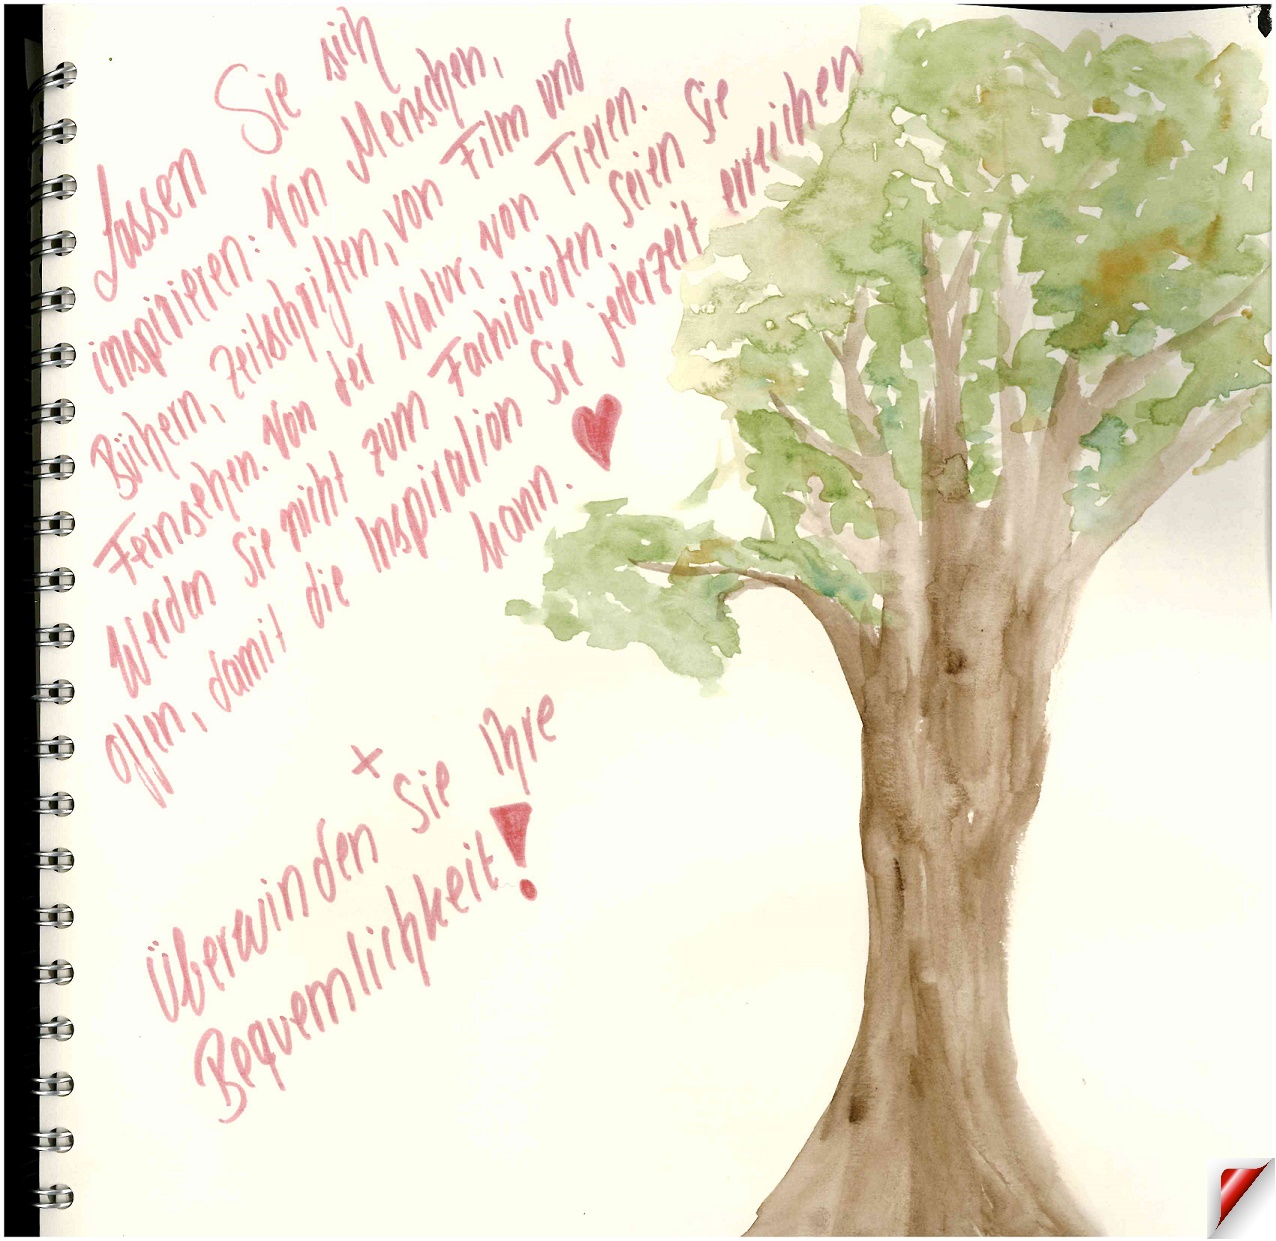 Lassen Sie sich
inspirieren: Von Menschen,
Büchern, Zeitschriften, von Film und
Fernsehen. Von der Natur, von Tieren.
Werden Sie nicht zum Fachidioten. Seien Sie
offen, damit die Inspiration Sie jederzeit erreichen
kann.
+
Überwinden Sie Ihre
Bequemlichkeit!